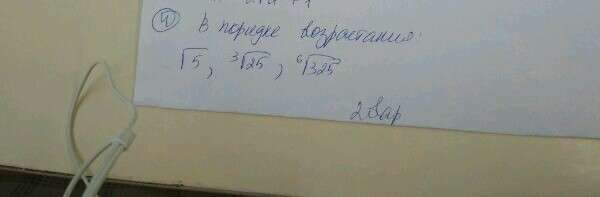 ④ В порядке возрастания:
√5, ³√25, ⁶√325
2 вар